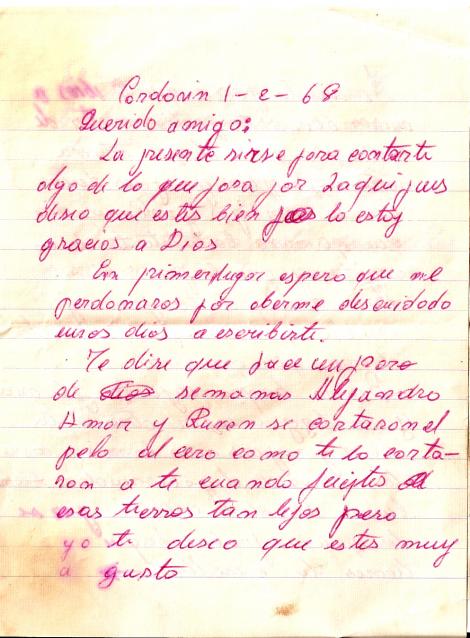 Cordovin 1-2-68
Querido amigo:
La presente sirse para contarte
algo de lo que pasa por laqui pues
deseo que estes bien yo lo estoy
gracias a Dios
En primer lugar espero que me
perdonaras por aberme descuidado
unos dias a escribirte.
Te dire que
de dias semanas Alejandro
Amor y Ruven se cortaron el
pelo al cero como te lo corta-
ron a te cuando fuistes a
esas tierras tan lejos pero
yo te deseo que estes muy
a gusto